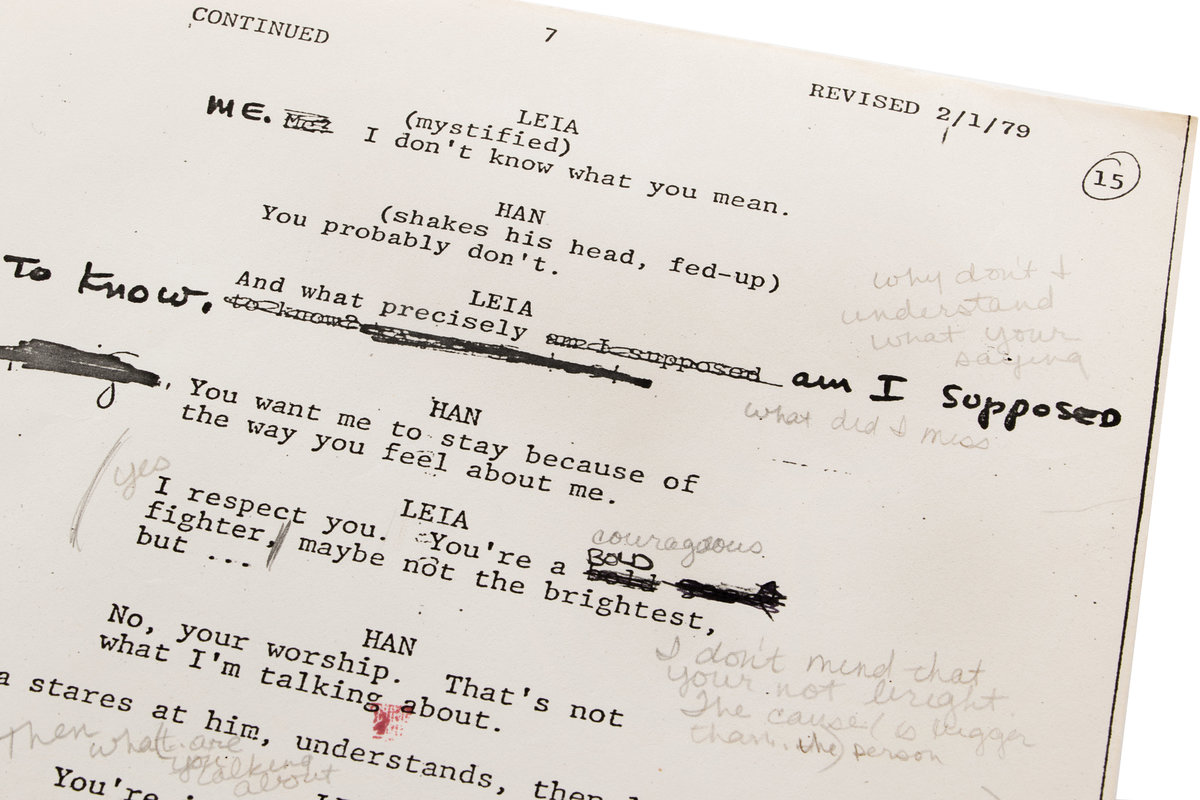 CONTINUED
7
REVISED 2/1/79
15
LEIA
(mystified)
ME. Me? I don't know what you mean.
HAN
(shakes his head, fed-up)
You probably don't.
why don't I
understand
what your
saying
LEIA
And what precisely am I supposed
am I supposed
to know?
To know.
what did I miss
HAN
You want me to stay because of
the way you feel about me.
yes
LEIA
courageous
BOLD
I respect you. You're a bold
fighter, maybe not the brightest,
but ...
HAN
No, your worship. That's not
what I'm talking about.
I don't mind that
your not bright.
The cause (is bigger
than. the) person
a stares at him, understands, then
Then what are
you talking
about
You're